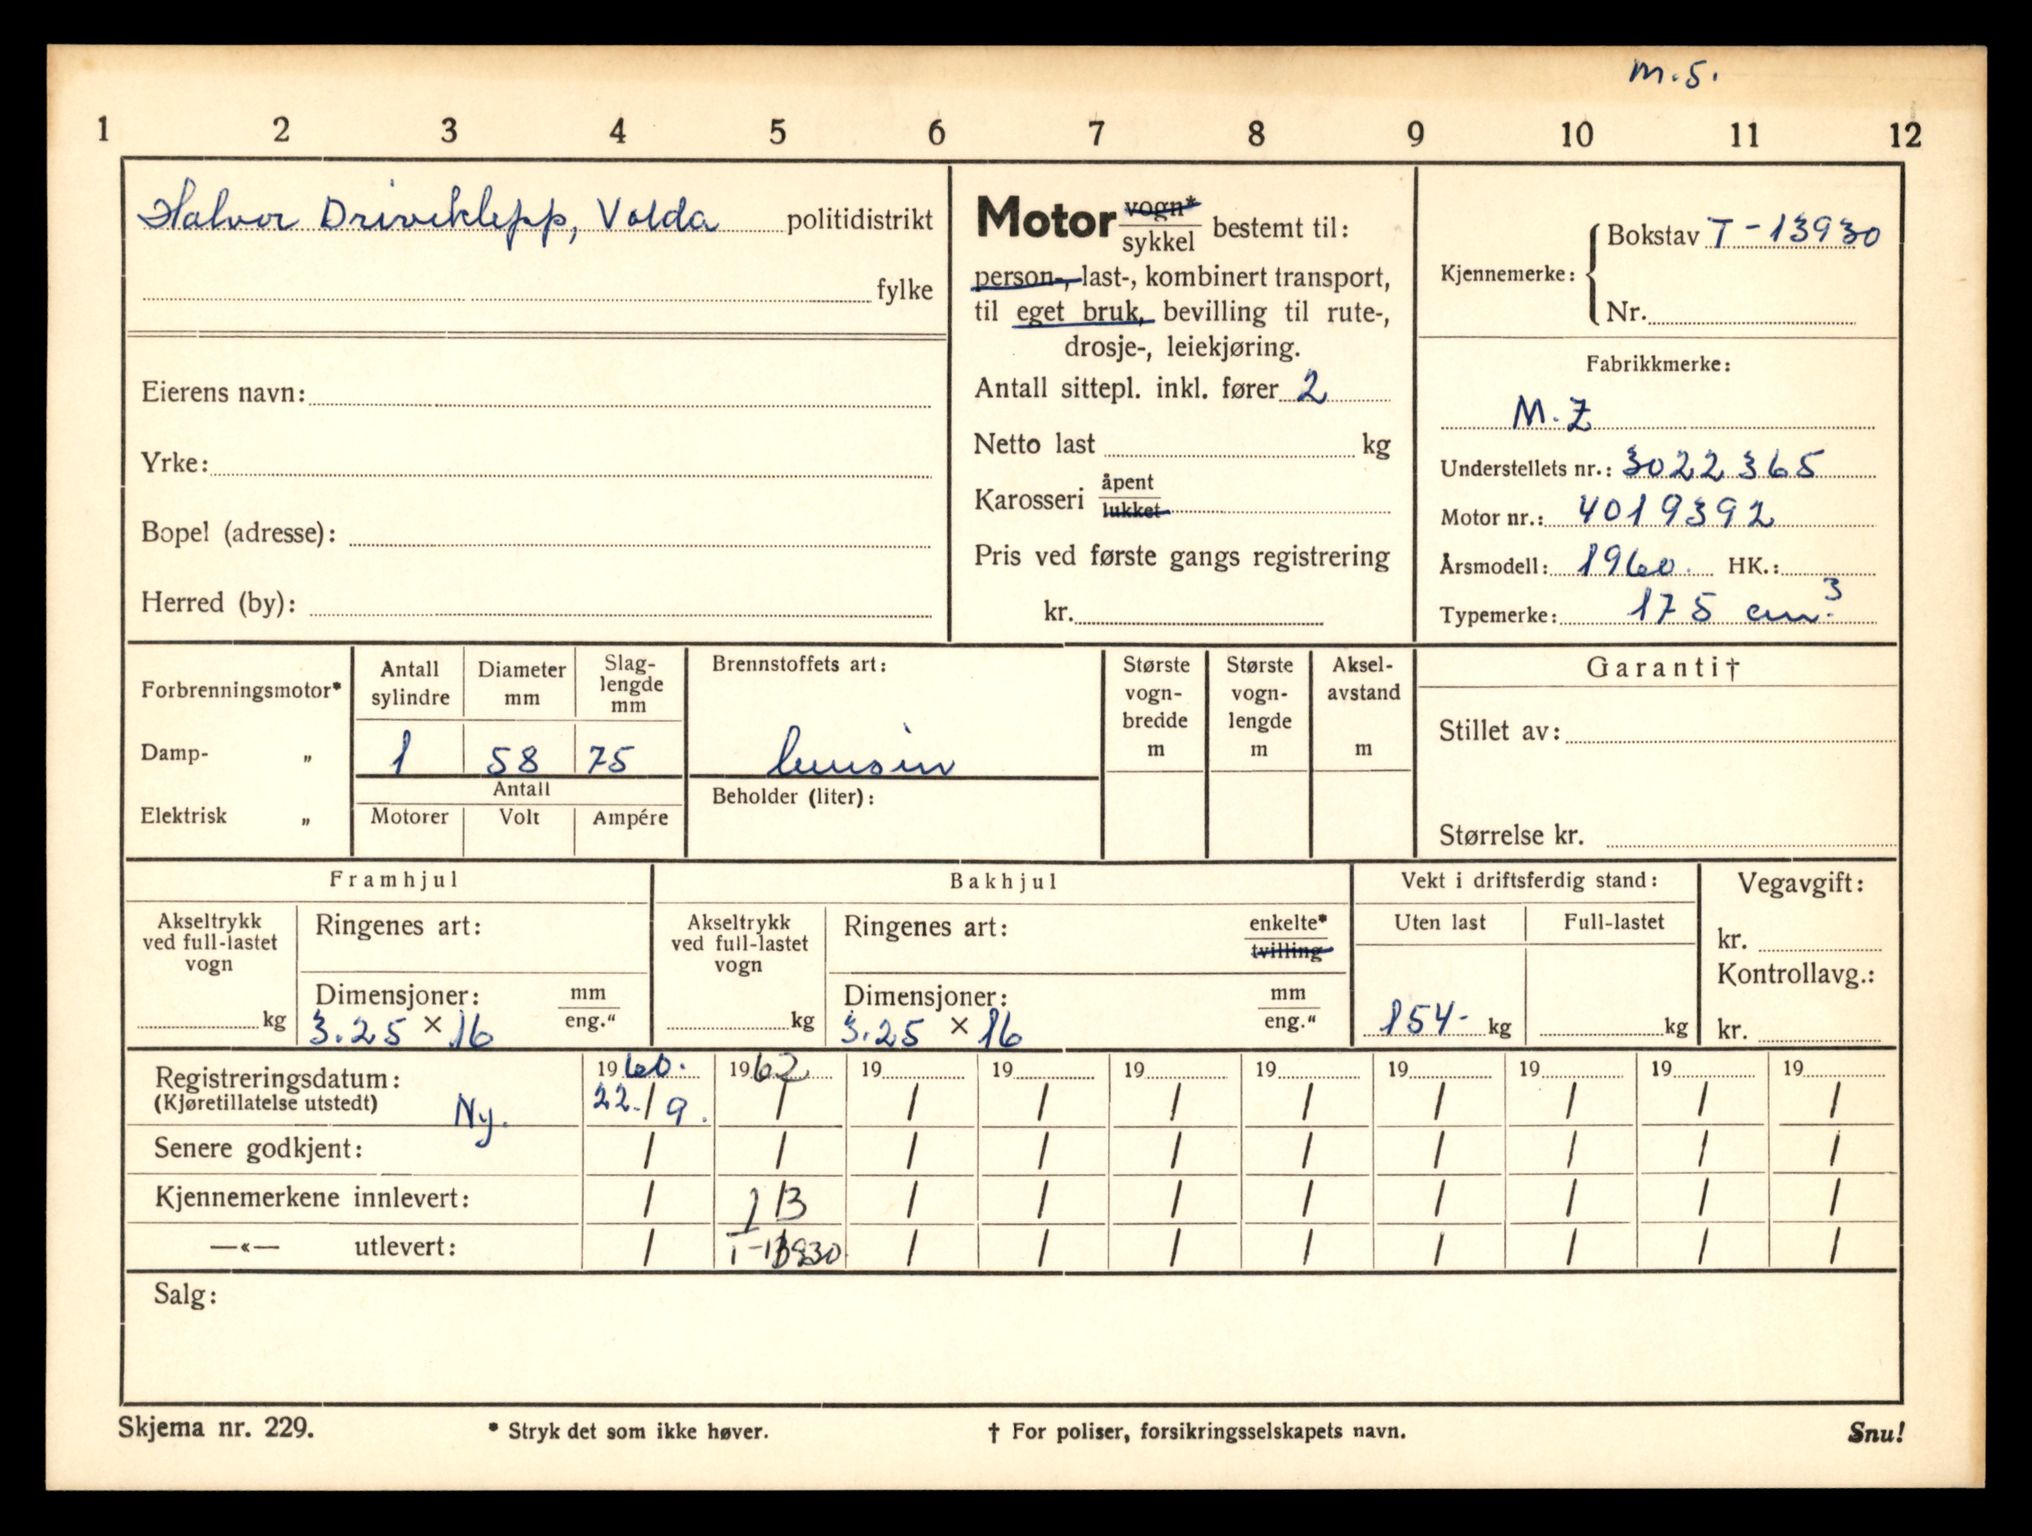 m.s.
1 2 3 4 5 6 7 8 9 10 11 12
Halvor Driveklepp, Volda politidistrikt
fylke
Eierens navn:
Yrke:
Bopel (adresse):
Herred (by):
Motor vogn* / sykkel bestemt til:
person-, last-, kombinert transport,
til eget bruk, bevilling til rute-,
drosje-, leiekjøring.
Antall sittepl. inkl. fører 2
Netto last kg
Karosseri åpent / lukket
Pris ved første gangs registrering
kr.
Kjennemerke: { Bokstav T-13930
Nr.
Fabrikkmerke:
M.Z
Understellets nr.: 3022365
Motor nr.: 4019392
Årsmodell: 1960. HK.:
Typemerke: 175 cm³.
Forbrenningsmotor*
Damp- „
Elektrisk „
Antall sylindre Diameter mm Slag-lengde mm
1 58 75
Antall
Motorer Volt Ampére
Brennstoffets art:
bensin
Beholder (liter):
Største vogn-bredde m
Største vogn-lengde m
Aksel-avstand m
Garanti†
Stillet av:
Størrelse kr.
Framhjul
Akseltrykk ved full-lastet vogn
kg
Ringenes art:
Dimensjoner: mm / eng.“
3.25 × 16
Bakhjul
Akseltrykk ved full-lastet vogn
kg
Ringenes art: enkelte* / tvilling
Dimensjoner: mm / eng.“
3.25 × 16
Vekt i driftsferdig stand:
Uten last Full-lastet
154- kg kg
Vegavgift:
kr.
Kontrollavg.:
kr.
Registreringsdatum: 1960. 1962 19 19 19 19 19 19 19 19
(Kjøretillatelse utstedt) Ny. 22./9. / / / / / / / / /
Senere godkjent: / / / / / / / / / /
Kjennemerkene innlevert: / 1/3 / / / / / / / /
—«— utlevert: / T-13930 / / / / / / / /
Salg:
Skjema nr. 229. * Stryk det som ikke høver. † For poliser, forsikringsselskapets navn. Snu!